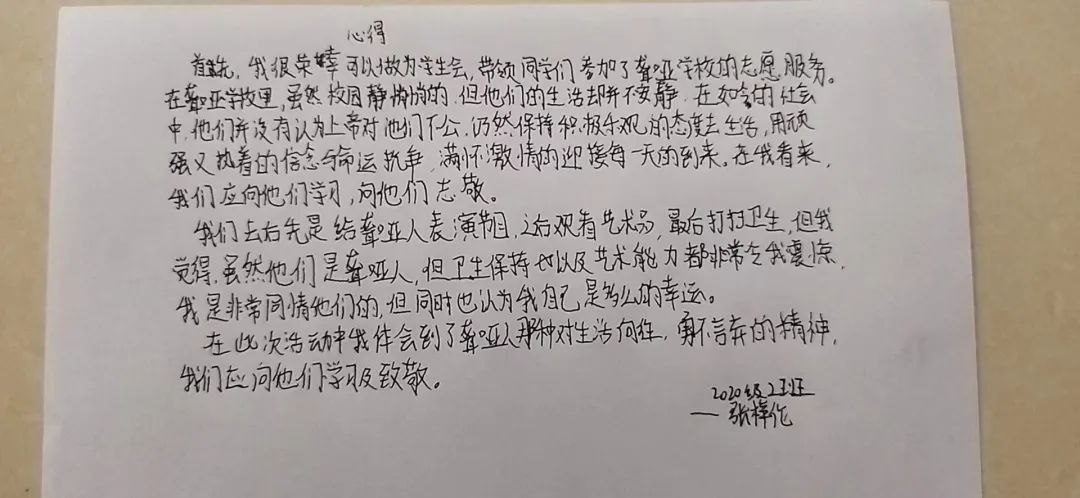 心得
首先,我很荣幸可以做为学生会,带领同学们参加了聋哑学校的志愿服务。
在聋哑学校里,虽然校园静悄悄的,但他们的生活却并不安静,在如今的社会
中,他们并没有认为上帝对他们不公,仍然保持积极乐观的态度去生活,用顽
强又执着的信念与命运抗争,满怀激情的迎接每一天的到来。在我看来,
我们应向他们学习,向他们志敬。
我们去后先是给聋哑人表演节目,之后观看艺术品,最后打扫卫生,但我
觉得,虽然他们是聋哑人,但卫生保持也以及艺术能力都非常令我震惊,
我是非常同情他们的,但同时也认为我自己,是多么的幸运。
在此次活动中我体会到了聋哑人那种对生活向往,勇不言弃的精神,
我们应向他们学习及致敬。
2020级2班
——张梓